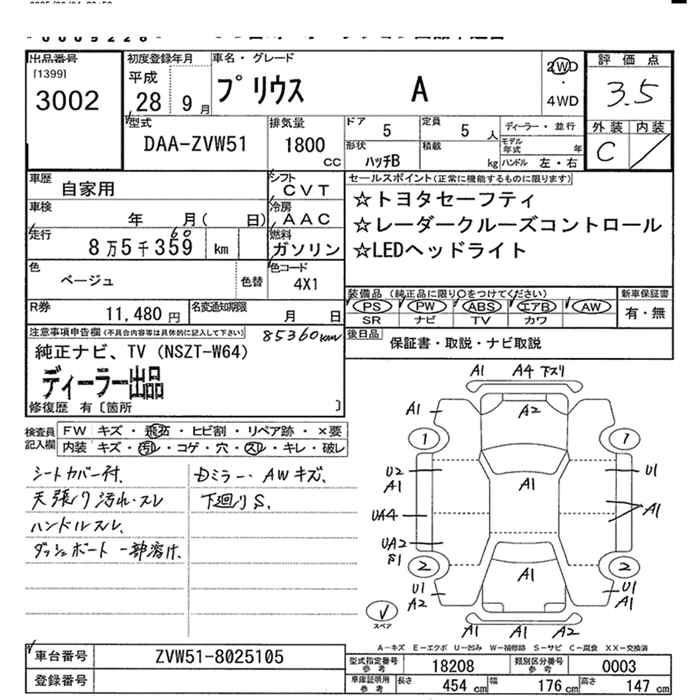 出品番号
[1399]
3002
初度登録年月
平成
28 9 月
車名・グレード
プリウス A
2WD
4WD
評価点
3.5
外装 内装
C
型式
DAA-ZVW51
排気量
1800
CC
ドア
5
定員
5 人
形状
ハッチB
積載
kg
ディーラー・並行
モデル年式 年
ハンドル 左・右
車歴
自家用
シフト
CVT
車検
年 月( 日)
冷房
AAC
走行
8万5千359 km
60
燃料
ガソリン
色
ベージュ
色替
色コード
4X1
R券
11,480 円
名変通知期限
月 日
セールスポイント(正常に機能するものに限ります)
☆トヨタセーフティ
☆レーダークルーズコントロール
☆LEDヘッドライト
装備品 (純正品に限り○をつけてください)
PS PW ABS エアB AW
SR ナビ TV カワ
新車保証書
有・無
後日品
保証書・取説・ナビ取説
注意事項申告欄(不具合内容等は具体的に記入して下さい)
85360km
純正ナビ、TV(NSZT-W64)
ディーラー出品
修復歴 有〔箇所 〕
検査員記入欄
FW キズ・飛石・ヒビ割・リペア跡・×要
内装 キズ・汚レ・コゲ・穴・スレ・キレ・破レ
シートカバー付.
天張り汚れ・スレ
ハンドルスレ.
ダッシュボード一部溶け.
Dミラー・AWキズ.
下廻りS.
A1 A4 下スリ
A1 A2
1 1
U2
A1
A1
U1
UA4
A1
UA2
S1
2 2
A1
U1
A2
A1
U1
A1
A2
スペア
A-キズ E-エクボ U-凹み W-補修跡 S-サビ C-腐食 XX-交換済
車台番号
ZVW51-8025105
登録番号
型式指定番号
参考
18208
類別区分番号
参考
0003
車庫証明用
参考
長さ 454 cm 幅 176 cm 高さ 147 cm